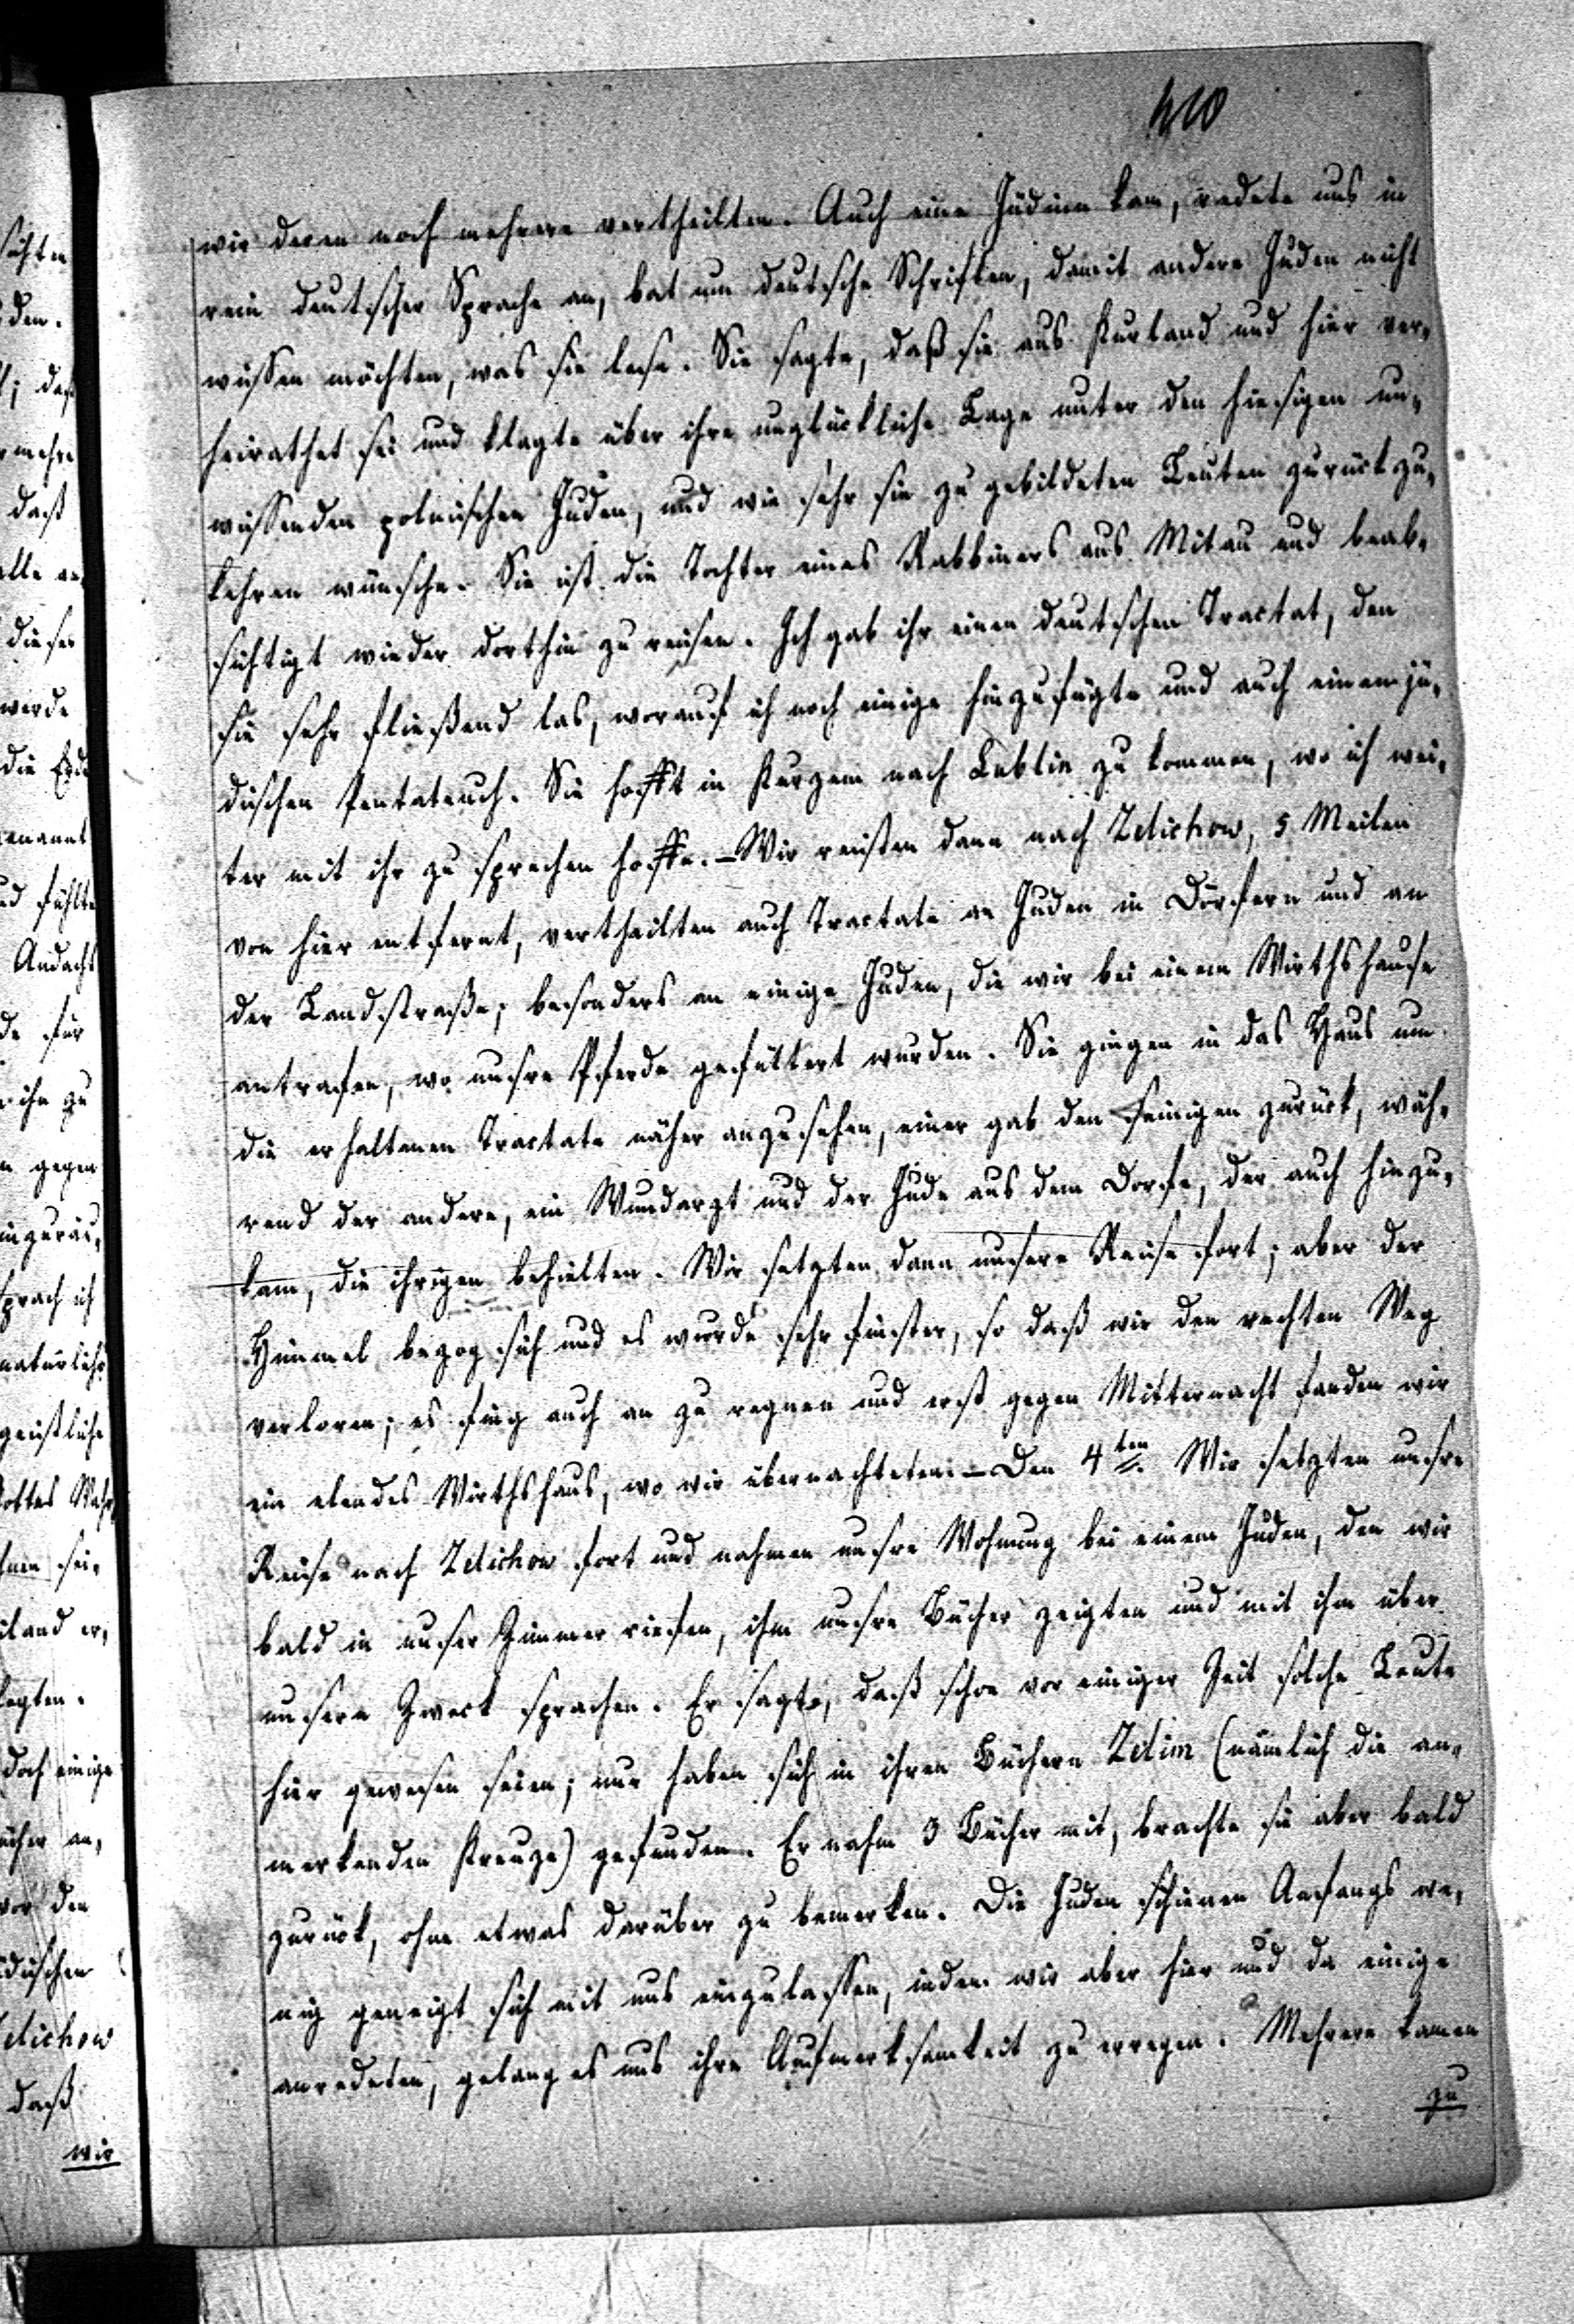 410
wir deren noch mehrere vertheilten. Auch eine Jüdinn kam, redete uns in
rein deutscher Sprache an, bat um deutsche Schriften, damit andere Juden nicht
wissen möchten, was sie lese. Sie sagte, daß sie aus Kurland und hier ver-
heirathet sei und klagte über ihre unglückliche Lage unter den hiesigen un-
wissenden polnischen Juden, und wie sehr sie zu gebildeten Leuten zurückzu-
kehren wünsche. Sie ist die Tochter eines Rabbiners aus Mitau und beab-
sichtigt wieder dorthin zu reisen. Ich gab ihr einen deutschen Tractat, den
sie sehr fließend las, worauf ich noch einige hinzufügte und auch einem jü-
dischen Pentateuch. Sie hofft in Kurzem nach Lublin zu kommen, wo ich wei-
ter mit ihr zu sprechen hoffe. – Wir reisten dann nach Zelichow, 5 Meilen
von hier entfernt, vertheilten auch Tractate an Juden in Dörfern und an
der Landstraße, besonders an einige Juden, die wir bei einem Wirthshause
antrafen, wo unsre Pferde gefüttert wurden. Sie gingen in das Haus um
die erhaltenen Tractate näher anzusehen, einer gab den seinigen zurück, wäh-
rend der andere, ein Wundarzt und der Jude aus dem Dorfe, der auch hinzu-
kam, die ihrigen behielten. Wir setzten dann unsere Reise fort; aber der
Himmel bezog sich und es wurde sehr finster, so daß wir den rechten Weg
verloren; es fing auch an zu regnen und erst gegen Mitternacht fanden wir
ein elendes Wirthshaus, wo wir übernachteten. – Den 4ten. Wir setzten unsre
Reise nach Zelichow fort und nahmen unsre Wohnung bei einem Juden, den wir
bald in unser Zimmer riefen, ihm unsre Bücher zeigten und mit ihm über
unsern Zweck sprachen. Er sagte, daß schon vor einiger Zeit solche Leute
hier gewesen seien; nur haben sich in ihren Büchern Zelim (nämlich die an-
merkenden Kreuze) gefunden. Er nahm 3 Bücher mit, brachte sie aber bald
zurück, ohne etwas darüber zu bemerken. Die Juden schienen Anfangs we-
nig geneigt sich mit uns einzulassen, indem wir aber hier und da einige
anredeten, gelang es uns ihre Aufmerksamkeit zu erregen. Mehrere kamen
zu